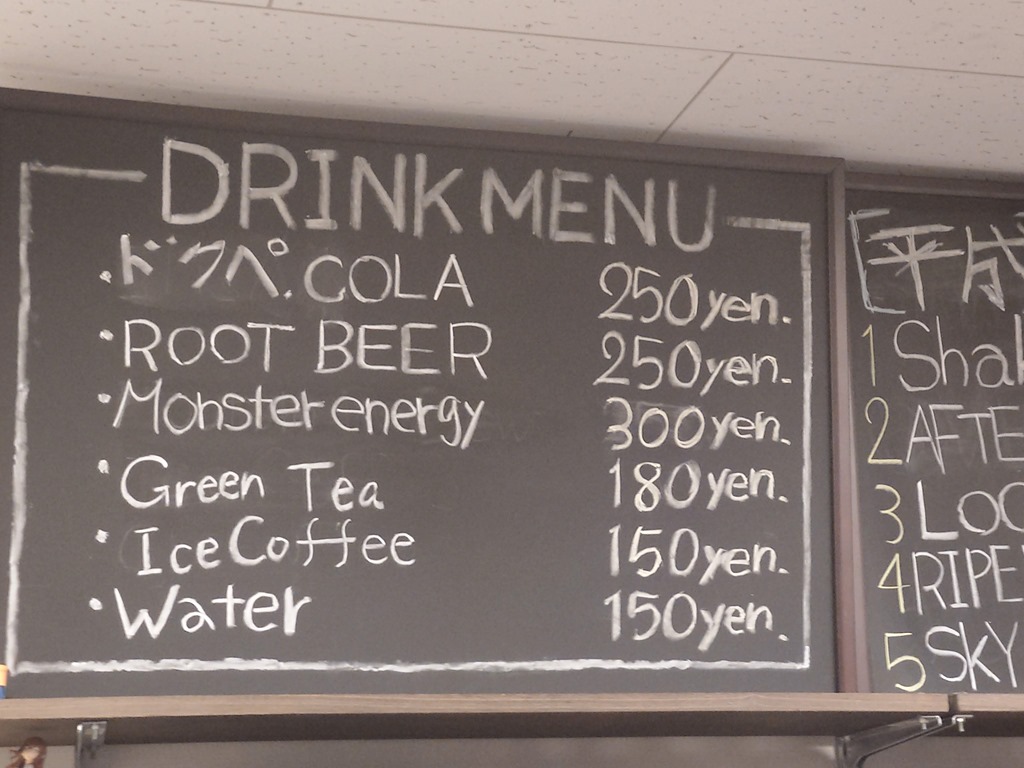 DRINK MENU
・ドクペ.COLA 250yen.
・ROOT BEER 250yen.
・Monster energy 300yen.
・Green Tea 180yen.
・Ice Coffee 150yen.
・Water 150yen.
平成
1 Shak
2 AFTE
3 LOO
4 RIPE
5 SKY